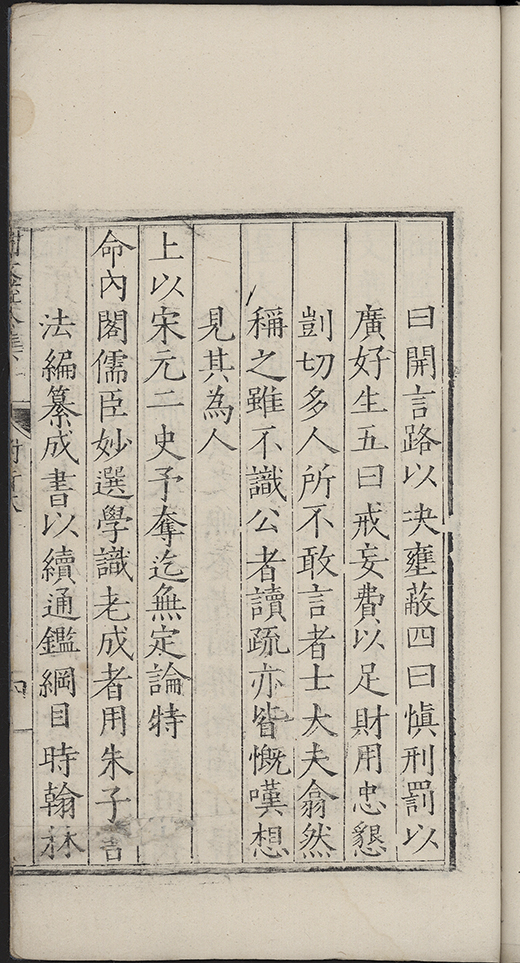 曰開言路以决壅蔽四曰慎刑罰以
廣好生五曰戒妄費以足財用忠懇
剴切多人所不敢言者士大夫翕然
稱之雖不識公者讀疏亦皆慨嘆想
見其為人
上以宋元二史予奪迄無定論特
命內閣儒臣妙選學識老成者用朱子言
法編纂成書以續通鑑綱目時翰林